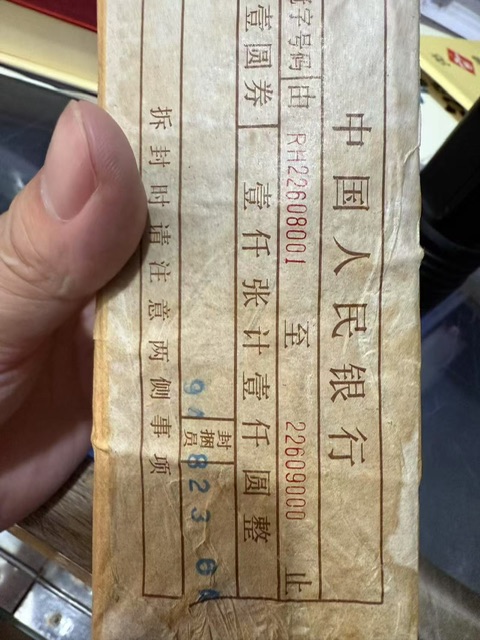 中国人民银行
字号码由RH22608001至22609000止
壹圆券 壹仟张计壹仟圆整
封捆员
823
拆封时请注意两侧事项